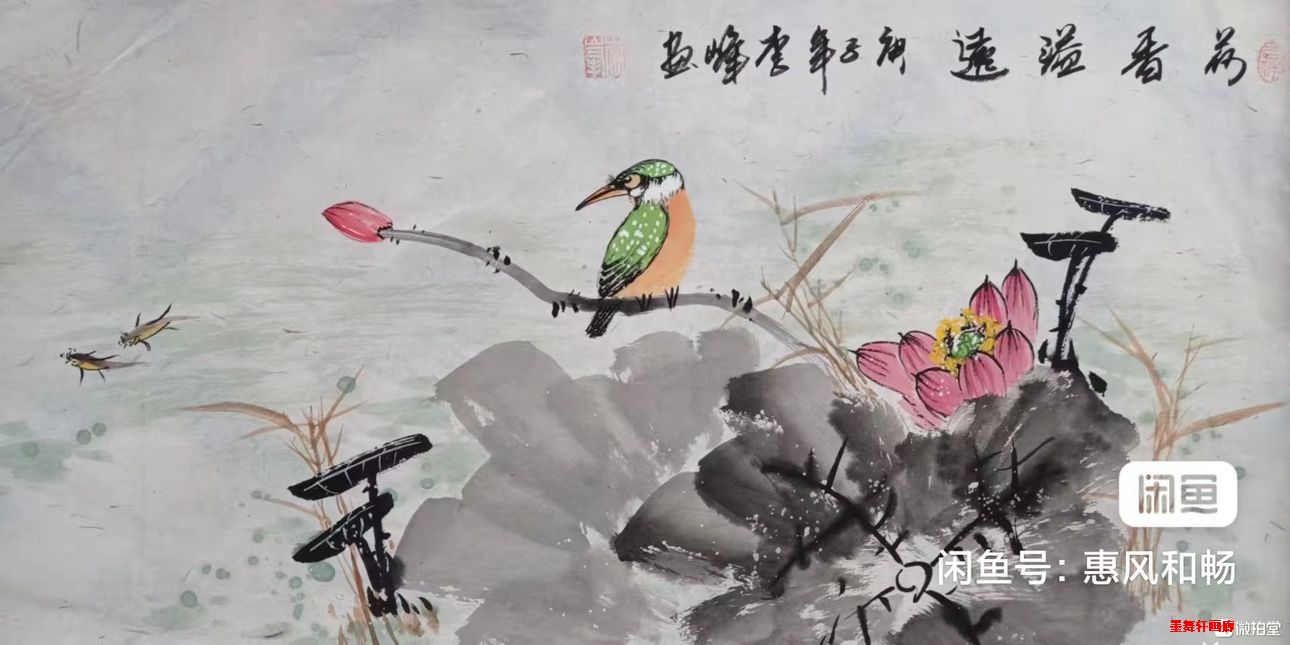 荷香溢遠 庚子年李峰畫
闲鱼
闲鱼号：惠风和畅
墨舞轩画廊
微拍堂